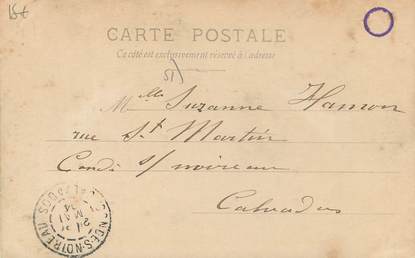 15€
CARTE POSTALE
Ce côté est exclusivement réservé à l'adresse
51)
Mlle Suzanne Hamon
rue St Martin
Condé s/ noireau
Calvados
MAI
04